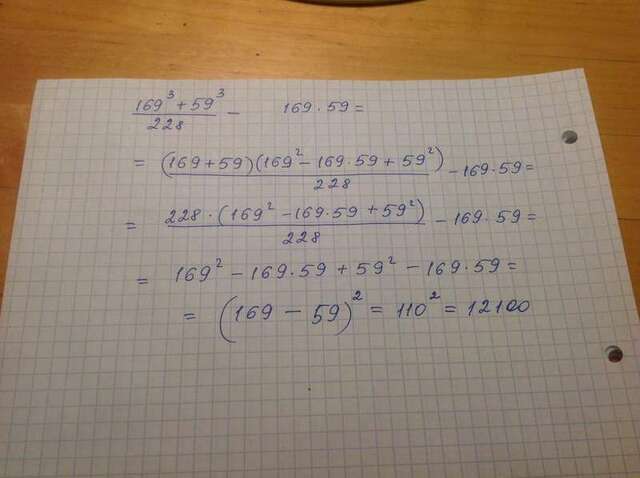 169³ + 59³ / 228 − 169 · 59 =
= (169 + 59)(169² − 169·59 + 59²) / 228 − 169·59 =
= 228 · (169² − 169·59 + 59²) / 228 − 169·59 =
= 169² − 169·59 + 59² − 169·59 =
= (169 − 59)² = 110² = 12100